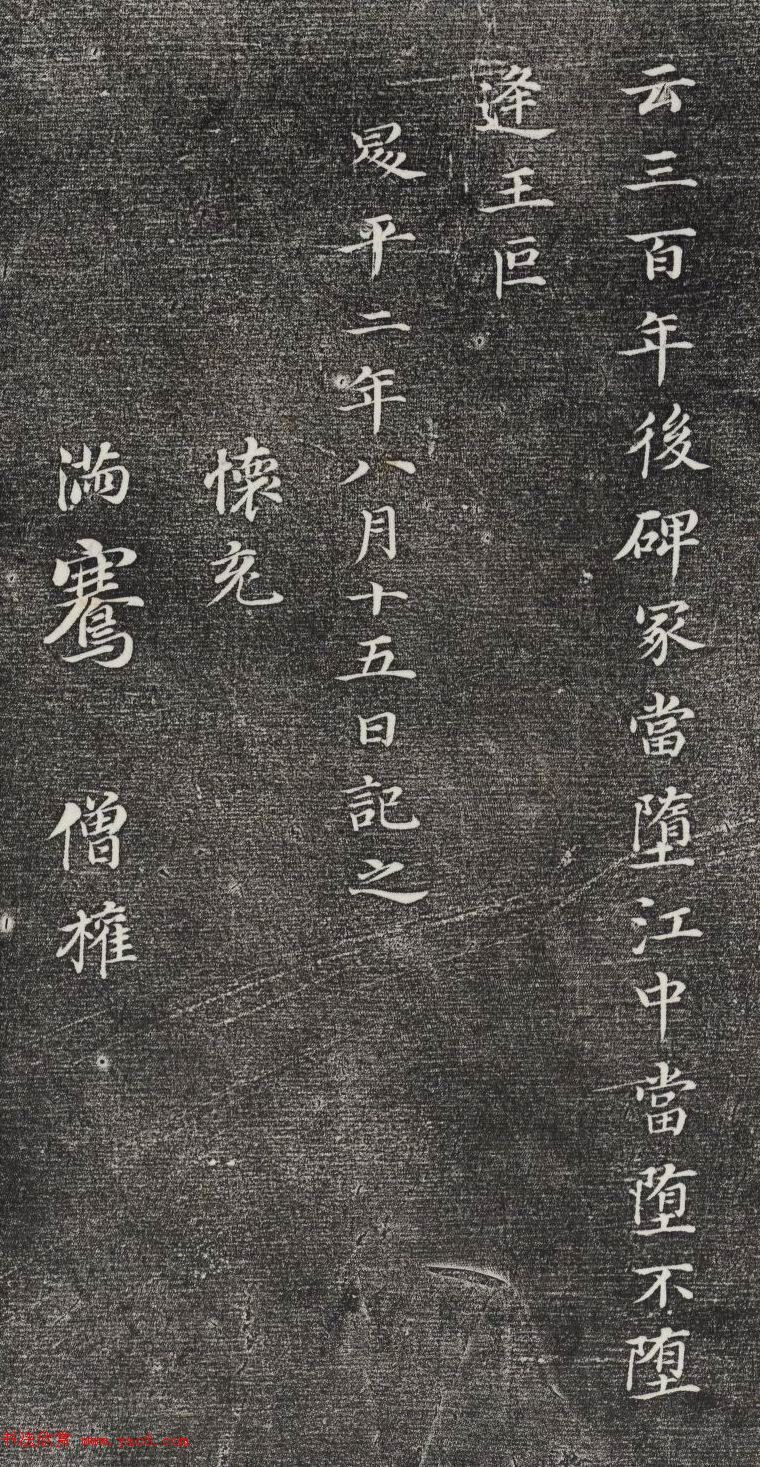 云三百年後碑冢當墮江中當堕不堕
逢王叵
昇平二年八月十五日記之
懷充
滿騫 僧權
书法欣赏 www.yac8.com